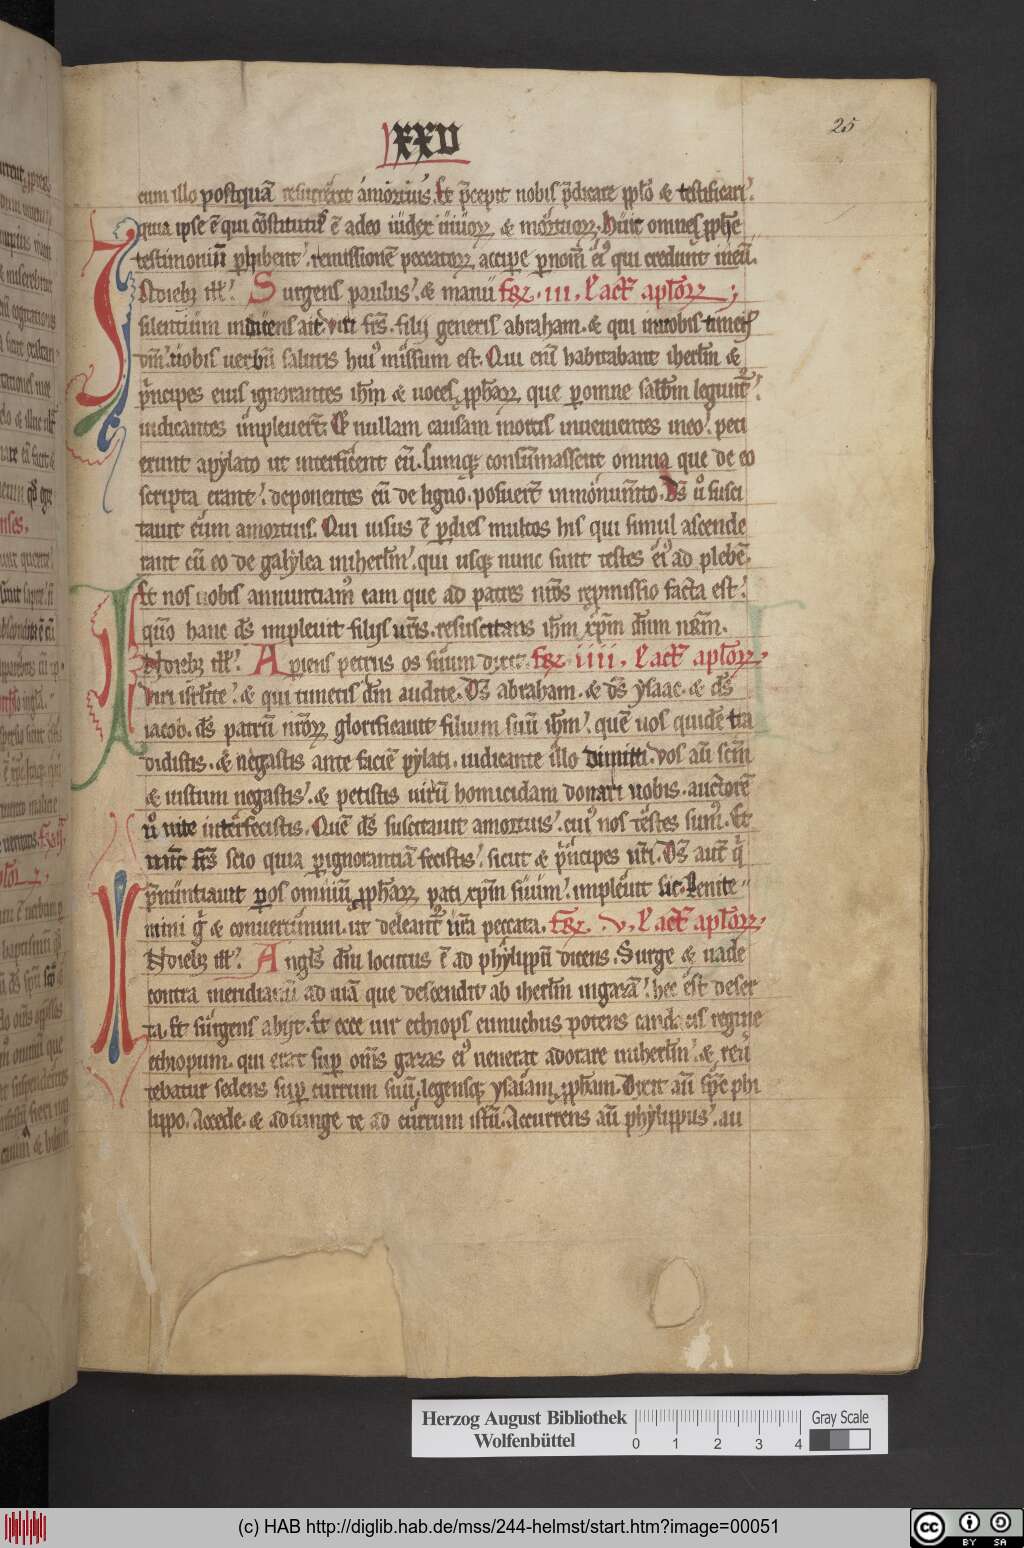 XXV
25
eum illo postquā resurrexit a mortuis. Et p̄cepit nobis p̄dicare pplo & testificari.
quia ipse ē qui cōstitutus ē a deo iudex uiuorꝝ & mortuorꝝ. Huic omnes pphe
testimoniū phibent. remissionē peccatorꝝ accipe p nom̄ eiꝰ qui credunt in eū.
N diebꝫ ill̄. Surgens paulus. & manu fer̄. iii. l' act' aplorꝝ
silentium indicens ait. viri frs. filij generis abraham. & qui in uobis timetis
dm̄. uobis uerbū salutis huiꝰ missum est. Qui enī habitabant iherl̄m &
p̄ncipes eius ignorantes ihm̄ & uoces ppharꝝ que p omne sabb̄m leguntᷣ.
iudicantes impleuer̄t. Et nullam causam mortis inuenientes in eo. peti
erunt a pylato ut interficerent eū. Cumqꝫ consummassent omnia que de eo
scripta erant. deponentes eū de ligno. posuer̄t in monum̄to. Ds̄ u̾o susci
tauit eum a mortuis. Qui uisus ē p dies multos his qui simul ascende
rant cū eo de galylea in iherl̄m. qui usqꝫ nunc sunt testes eiꝰ ad plebē.
Et nos uobis annuntiamꝰ eam que ad patres nr̄os repmissio facta est.
qm̄o hanc ds̄ impleuit filijs ur̄is. resuscitans ihm̄ xp̄m dn̄m nr̄m.
N diebꝫ ill̄. Apiens petrus os suum dixit. fer̄ iiii. l' act' aplorꝝ.
viri isrl̄ite. & qui timetis dm̄ audite. Ds̄ abraham. & ds̄ ysaac. & ds̄
iacob. ds̄ patrū nr̄orꝝ glorificauit filium suū ihm̄. quē uos quidē tra
didistis. & negastis ante faciē pylati. iudicante illo dimitti. vos aū sc̄m
& iustum negastis. & petistis uirū homicidam donari uobis. auctorē
u̾o uite interfecistis. Quē ds̄ suscitauit a mortuis. cuiꝰ nos testes sumꝰ. Et
nūc frs̄ scio quia p ignorantiā fecistis. sicut & p̄ncipes ur̄i. Ds̄ aut̄ q̄
p̄nuntiauit p os omniū ppharꝝ pati xp̄m suum. impleuit sic. Penite
mini g̾ & conuertimini. ut deleantᷣ ur̄a peccata. fer̄. v. l' act' aplorꝝ.
N diebꝫ ill̄. Angls̄ dn̄i locutus ē ad phylippū dicens. Surge & uade
contra meridianū ad uiā que descendit ab iherl̄m in gazā. hec est deser
ta. Et surgens abijt. Et ecce uir ethiops eunuchus potens candacis regine
ethiopum. qui erat sup om̄s gazas eiꝰ uenerat adorare in iherl̄m. & reu
tebatur sedens sup currum suū. legensqꝫ ysaiam ppham. Dixit aū sp̄c phi
lippo. Accede. & adiunge te ad currum istū. Accurrens aū phylippus. au
Herzog August Bibliothek
Wolfenbüttel
0 1 2 3 4
Gray Scale
(c) HAB http://diglib.hab.de/mss/244-helmst/start.htm?image=00051
cc BY SA